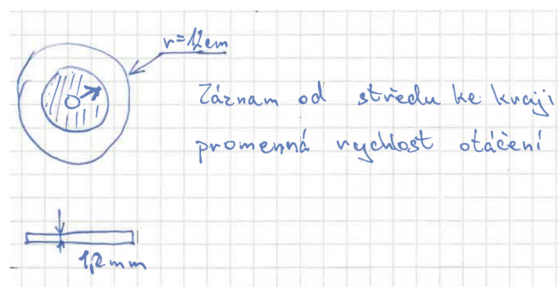 r=12cm
Záznam od středu ke kraji
promenná rychlost otáčení
1,2mm